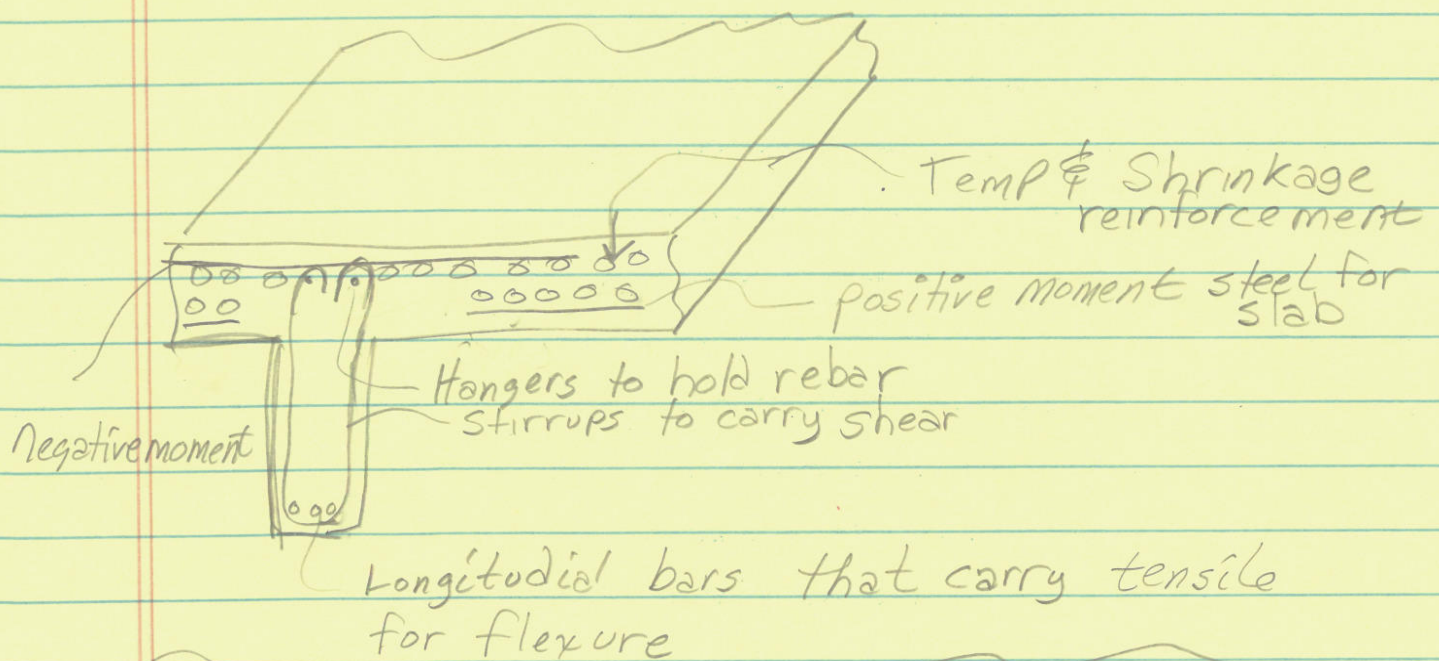 Temp & Shrinkage
reinforcement
positive moment steel for
slab
Hangers to hold rebar
stirrups to carry shear
Negative moment
Longitudial bars that carry tensile
for flexure